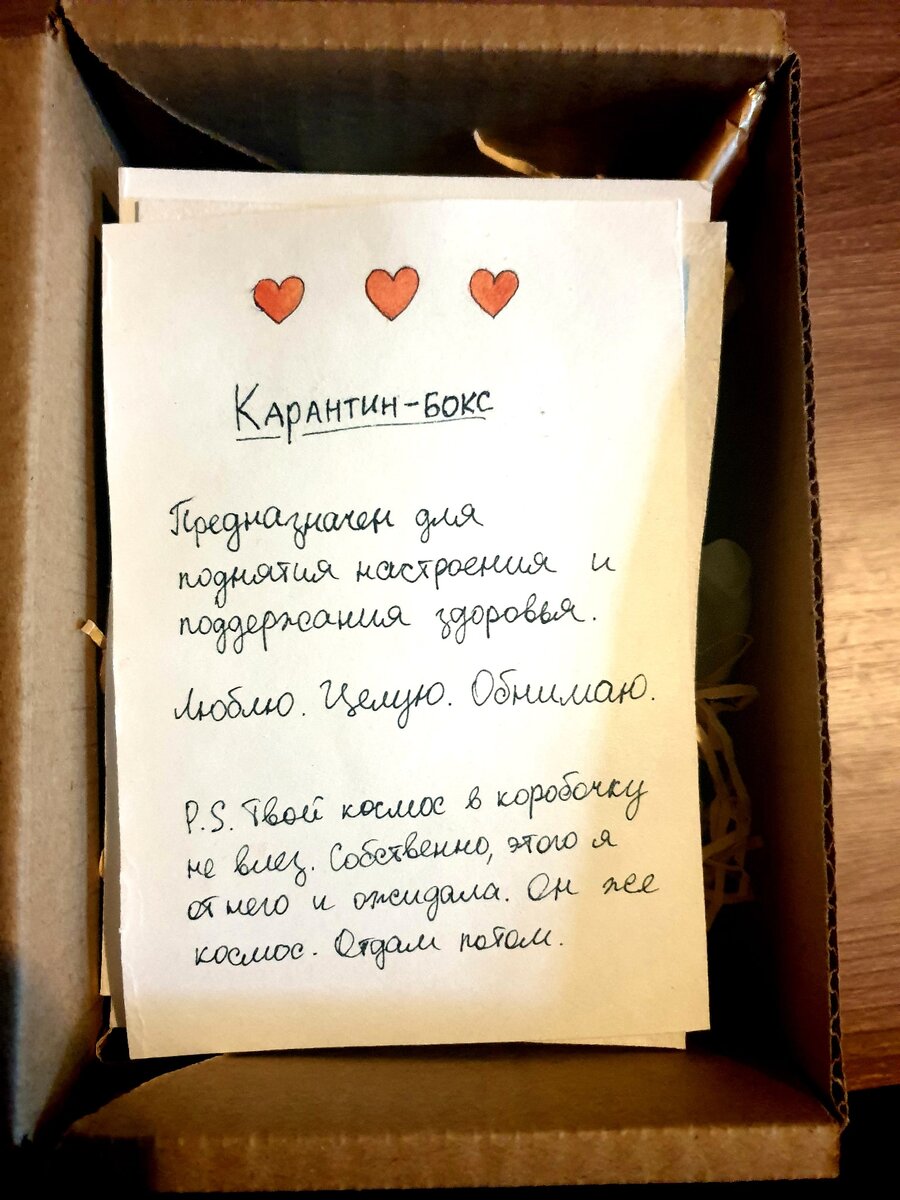 Карантин-бокс
Предназначен для
поднятия настроения и
поддержания здоровья.
Люблю. Целую. Обнимаю.
P.S. Твой космос в коробочку
не влез. Собственно, этого я
от него и ожидала. Он же
космос. Отдам потом.